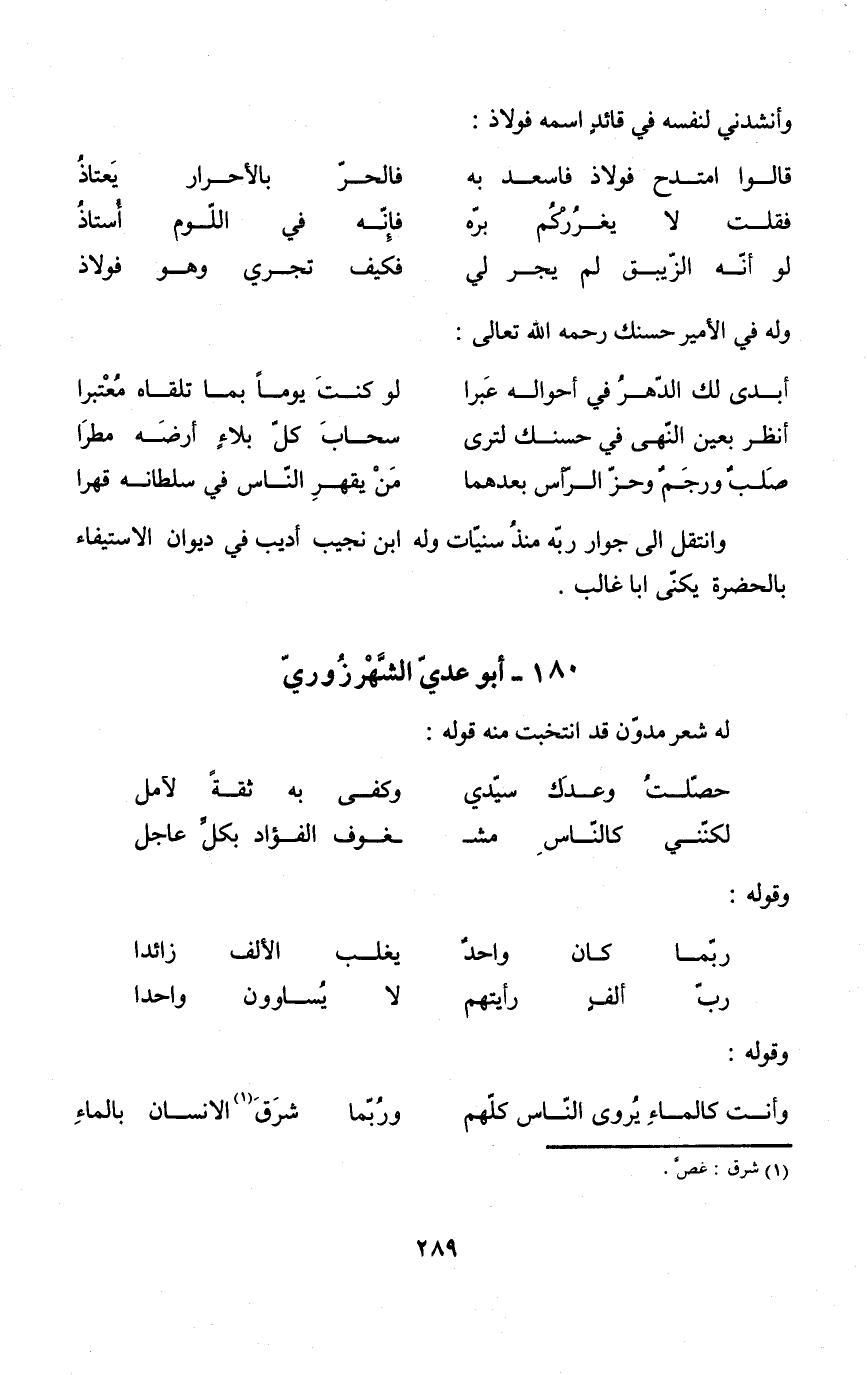 وأنشدني لنفسه في قائدٍ اسمه فولاذ :
قالوا امتدح فولاذ فاسعد به فالحرّ بالأحرار يَعتاذُ
فقلت لا يغرُرْكُم برّه فإِنّه في اللّوم أُستاذُ
لو أنّه الزّيبق لم يجر لي فكيف تجري وهو فولاذ
وله في الأمير حسنك رحمه الله تعالى :
أبدى لك الدّهرُ في أحواله عَبرا لو كنتَ يوماً بما تلقاه مُعْتبرا
أنظر بعين النّهى في حسنك لترى سحابَ كلّ بلاءٍ أرضَه مطرَا
صَلبٌ ورجَمٌ وحزّ الرّأس بعدهما مَنْ يقهرِ النّاس في سلطانه قهرا
وانتقل الى جوار ربّه منذُ سنيّات وله ابن نجيب أديب في ديوان الاستيفاء
بالحضرة يكنّى ابا غالب .
١٨٠ - أبو عديّ الشَّهْرزُوريّ
له شعر مدوّن قد انتخبت منه قوله :
حصّلتُ وعدَك سيّدي وكفى به ثقةً لآمل
لكنّني كالنّاسِ مشـ ـغوف الفؤاد بكلِّ عاجل
وقوله :
ربّما كان واحدٌ يغلب الألف زائدا
ربّ ألفٍ رأيتهم لا يُساوون واحدا
وقوله :
وأنت كالماءِ يُروى النّاس كلّهم ورُبّما شرَقَ (١) الانسان بالماءِ
(١) شرق : غصّ .
٢٨٩